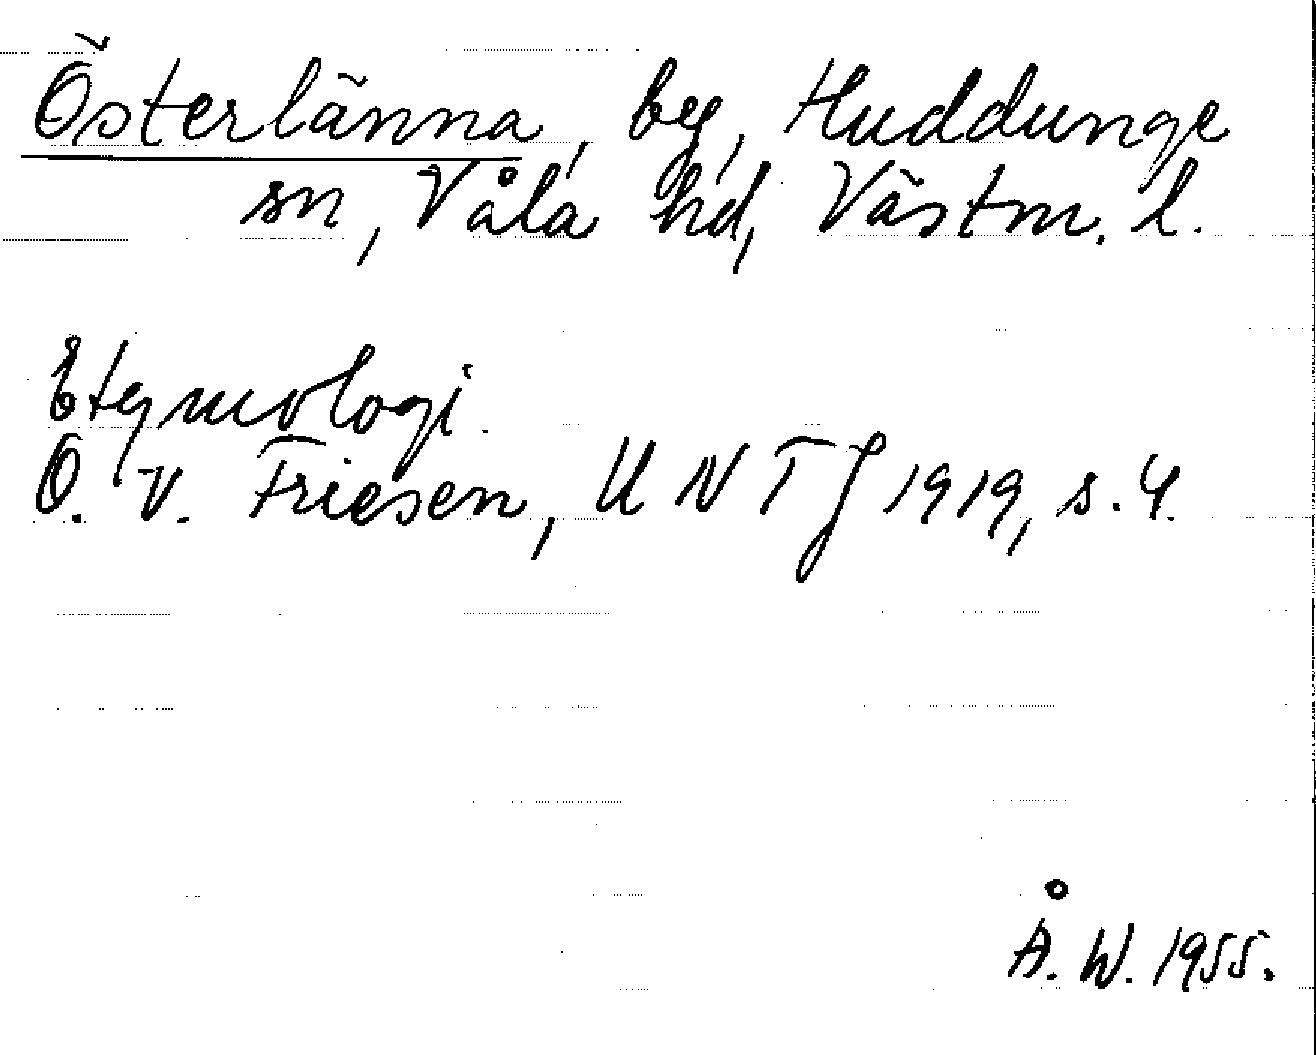 Österlänna, by, Huddunge
sn, Våla hd, Västm. l.
Etymologi.
O. v. Friesen, UNTJ 1919, s. 4.
Å. W. 1955.